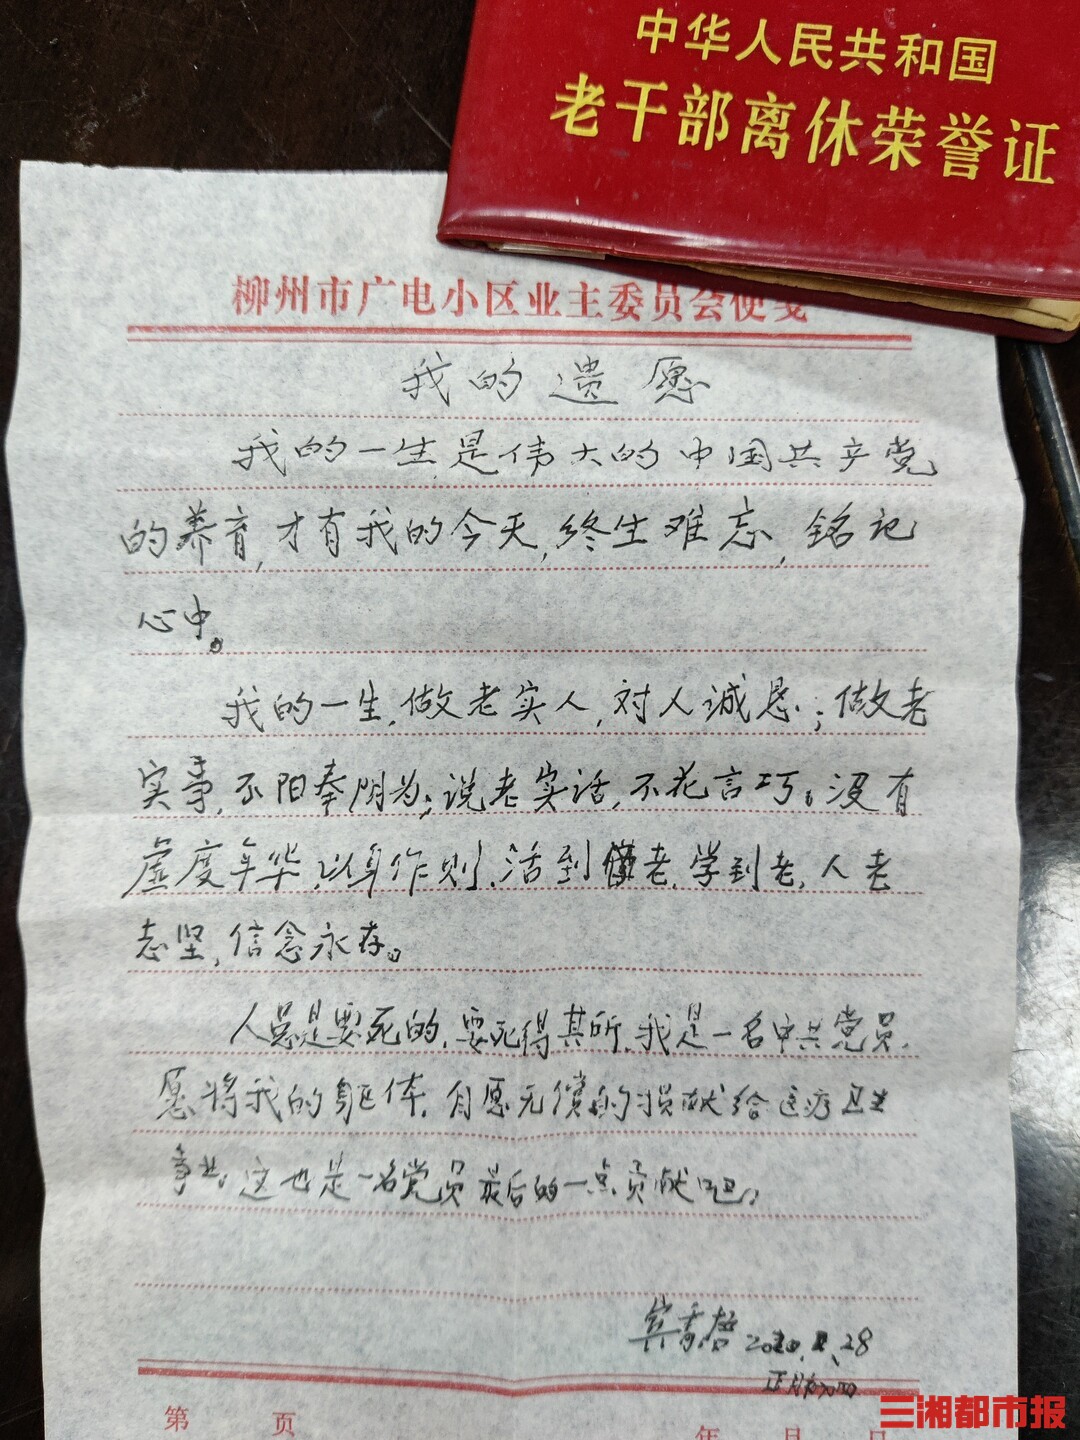 中华人民共和国
老干部离休荣誉证
柳州市广电小区业主委员会便笺
我的遗愿
我的一生是伟大的中国共产党
的养育,才有我的今天,终生难忘,铭记
心中。
我的一生,做老实人,对人诚恳;做老
实事,不阳奉阴为;说老实话,不花言巧。没有
虚度年华,以身作则,活到老,学到老,人老
志坚,信念永存。
人总是要死的,要死得其所,我是一名中共党员,
愿将我的躯体,自愿无偿的损献给医疗卫生
事业,这也是一名党员最后的一点贡献吧,
28
第 页 年 月 日
三湘都市报